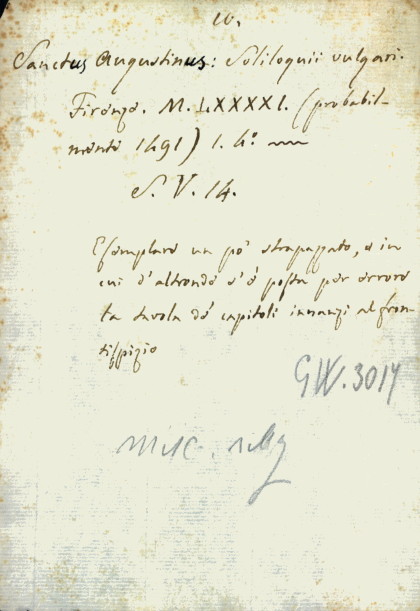 10.
Sanctus Augustinus: Soliloquii vulgari.
Firenze. M. LXXXXI. (probabil-
mente 1491) 1. 4º
S. V. 14.
Esemplare un po' strapazzato, e in
cui d'altronde s'è posta per errore
la tavola dé capitoli innanzi al fron-
tispizio
GW. 3017
Misc.